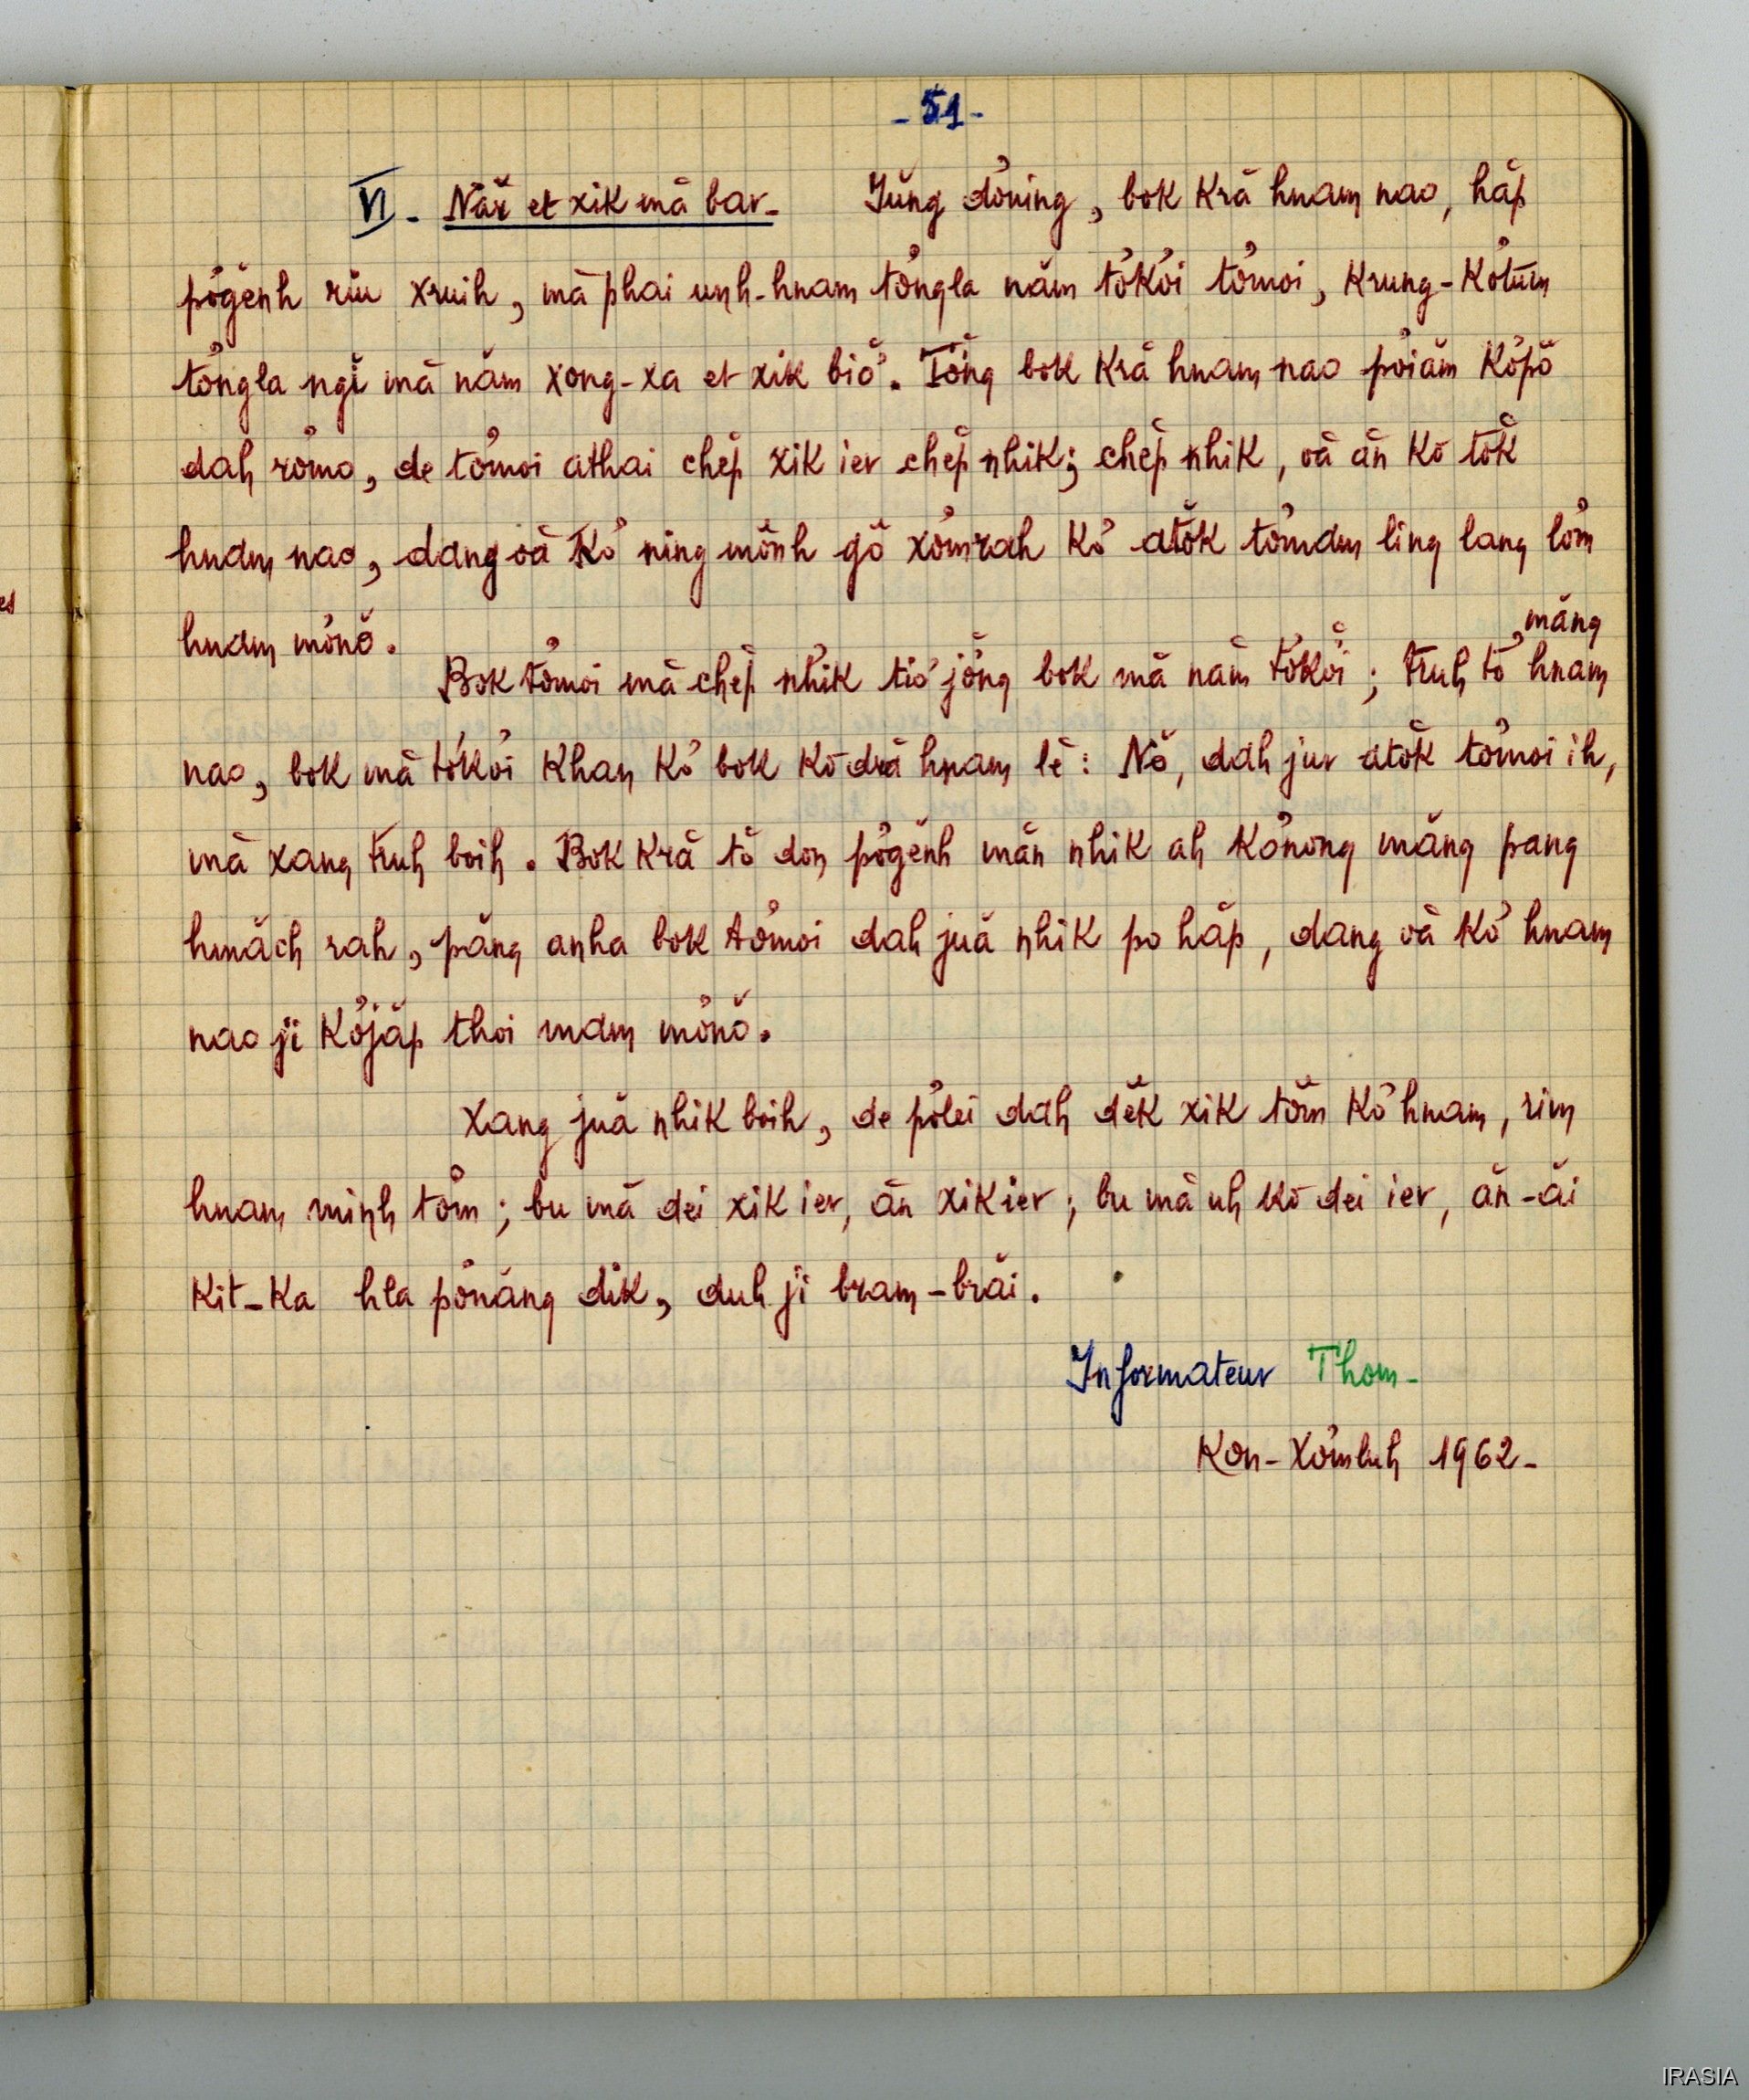 - 51 -
VI - Năr et xik mă bar - Jŭng dơning, bok kră hnam nao, hăp
pơgĕnh riu xruih, mă phai unh-hnam tơngla năm tơkơi tơmoi, Krung-Kơtŭm
tơngla ngĭ mă năm xong-xa et xik biơ̆. Tơ̆ng bok kră hnam nao pơiăm kơpô
dah rơmo, de tơmoi athai chĕp xik ier chĕp nhik; chĕp nhik, oă ăn kơ tơ̆k
hnam nao, dang oă kơ ning mơ̆nh gô xơmrah kơ atŏk tơmam ling lang lơ̆m
hnam mơnŏ.
Bok tơmoi mă chĕp nhik tiơ̆ jơ̆ng bok mă năm tơkơi; truh tơ̆ măng hnam
nao, bok mă tơkơi khan kơ bok kơdră hnam lĕ: Nŏ, dah jur atŏk tơmoi ih,
mă xang truh boih. Bok kră tơ̆ don pơgĕnh măn nhik ah kơnong măng pang
hmăch rah, păng anha bok tơmoi dah juă nhik po hăp, dang oă kơ hnam
nao jĭ kơjăp thoi mam mơnŏ.
Xang juă nhik boih, de pơlei dah dĕk xik tơ̆m kơ hnam, rim
hnam minh tơ̆m; bu mă dei xik ier, ăn xik ier; bu mă uh kơ dei ier, ăn-ăi
kit-ka hla pơnăng dik, duh jĭ bram-brăi.
Informateur Thom -
Kon-Xơmluh 1962 -
es
IRASIA